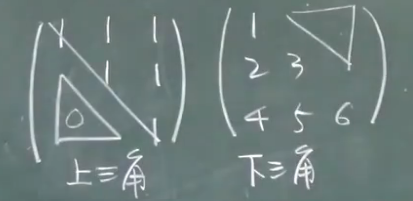 1 1 1 1
1 1 2 3
0 1 4 5 6
上三角 下三角